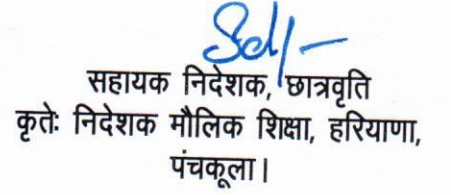 Sd/-
सहायक निदेशक, छात्रवृति
कृतेः निदेशक मौलिक शिक्षा, हरियाणा,
पंचकूला।